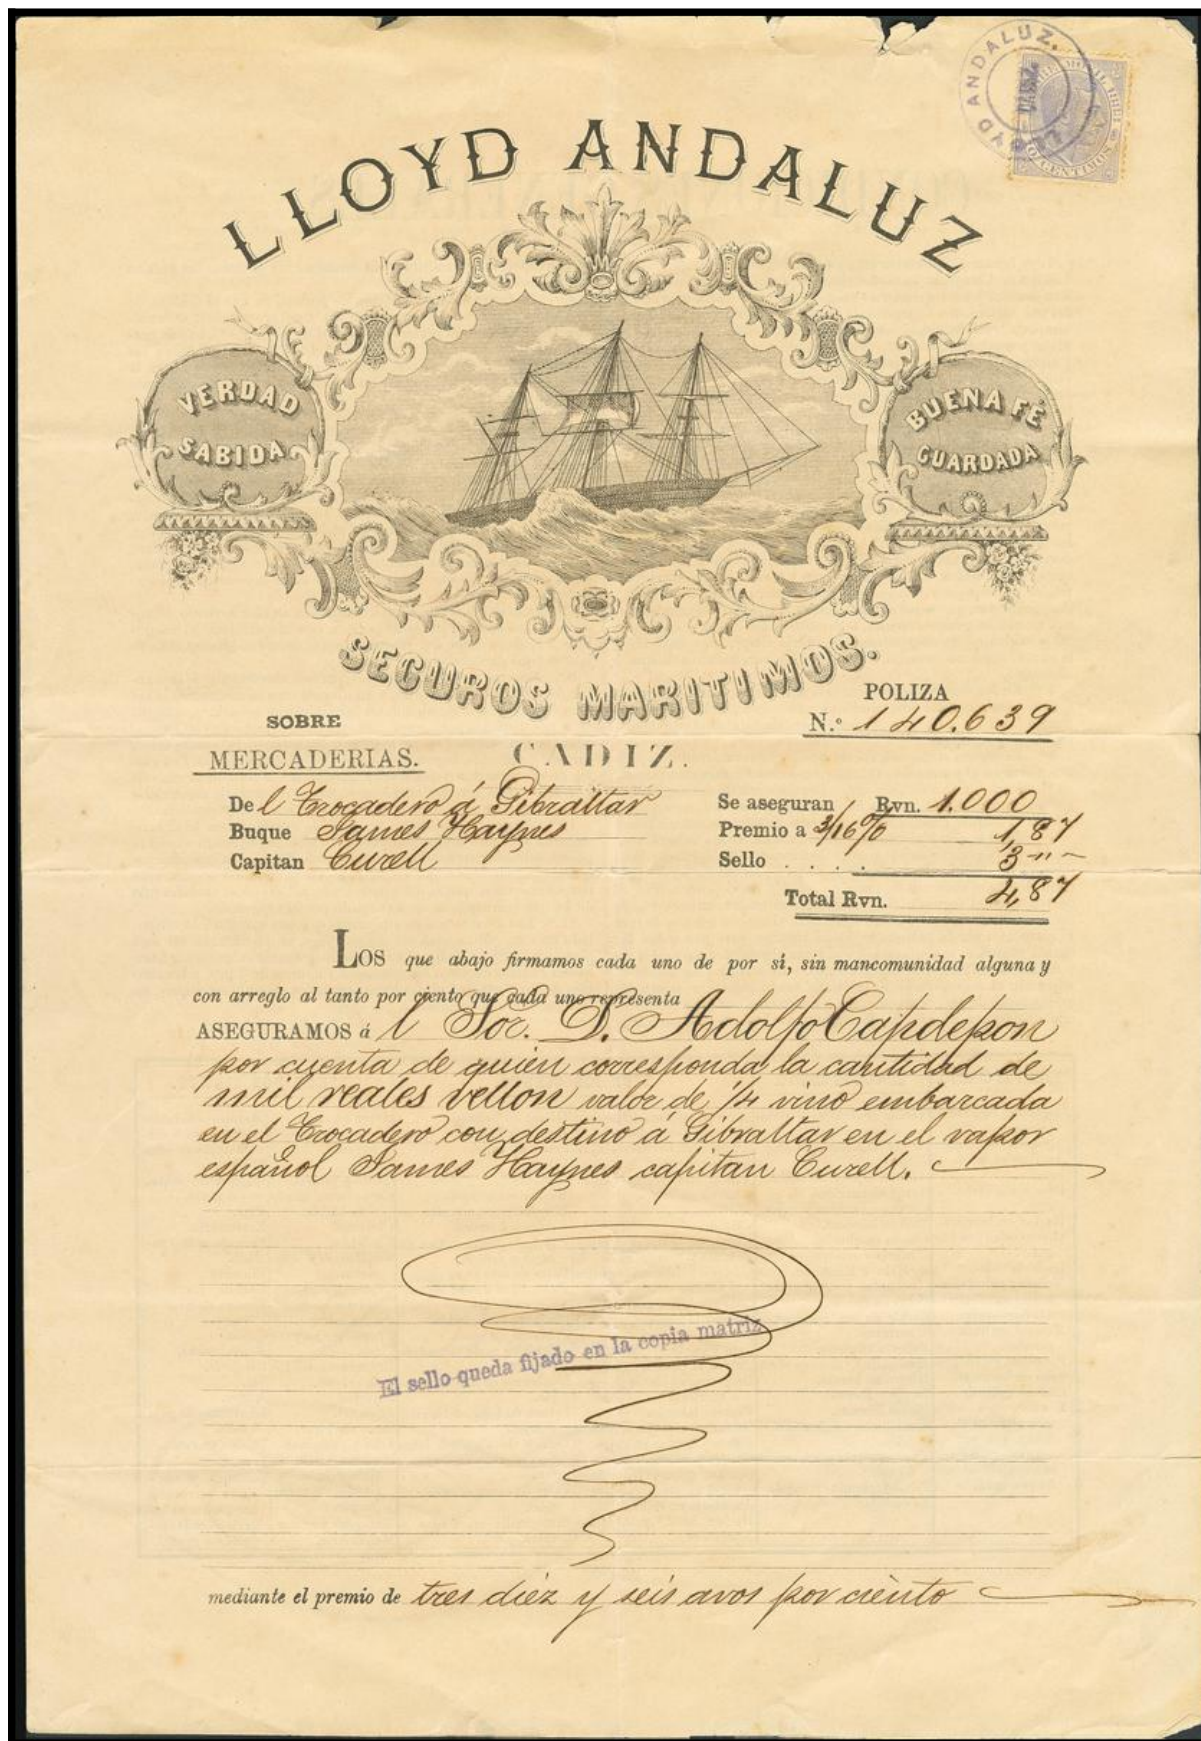 LLOYD ANDALUZ.
CADIZ
TIMBRE MOVIL 1881
10 CENTIMOS
LLOYD ANDALUZ
VERDAD SABIDA
BUENA FÉ GUARDADA
SEGUROS MARITIMOS.
POLIZA
SOBRE
N.º 140.639
MERCADERIAS.
CADIZ.
Del Trocadero á Gibraltar
Se aseguran Rvn. 1.000
Buque James Haynes
Premio a 3/16 % 1,87
Capitan Curell
Sello . . . . 3 " -
Total Rvn. 4,87
LOS que abajo firmamos cada uno de por sí, sin mancomunidad alguna y
con arreglo al tanto por ciento que cada uno representa
ASEGURAMOS ál Sor. D. Adolfo Capdepon
por cuenta de quien corresponda la cantidad de
mil reales vellon valor de 1/4 vino embarcada
en el Trocadero con destino á Gibraltar en el vapor
español James Haynes capitan Curell.
El sello queda fijado en la copia matriz
mediante el premio de tres diez y seis avos por ciento